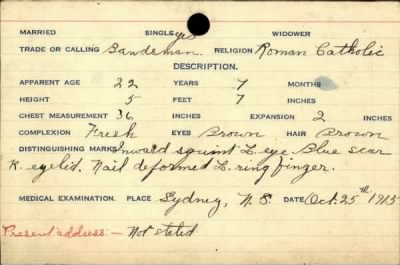 MARRIED SINGLE yes WIDOWER
TRADE OR CALLING Bandsman. RELIGION Roman Catholic
DESCRIPTION.
APPARENT AGE 22 YEARS 7 MONTHS
HEIGHT 5 FEET 7 INCHES
CHEST MEASUREMENT 36 INCHES EXPANSION 2 INCHES
COMPLEXION Fresh EYES Brown HAIR Brown
DISTINGUISHING MARKS Inward squint L. eye. Blue scar
R. eyelid. Nail deformed L. ring finger.
MEDICAL EXAMINATION. PLACE Sydney, N.S. DATE Oct. 25th 1915
Present address:— Not stated